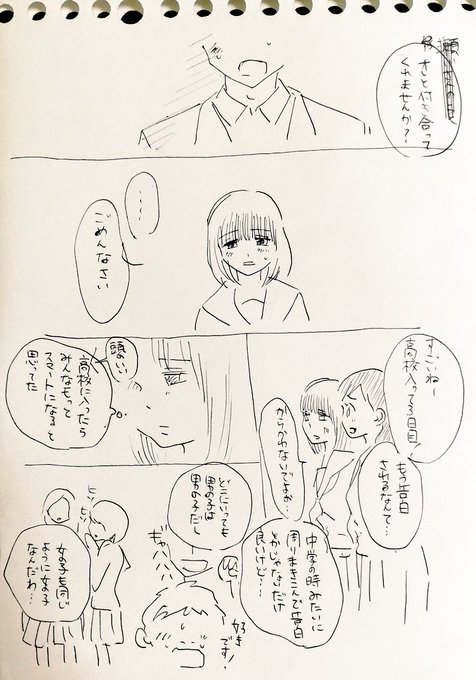 オレと付き合って
くれませんか?
……
ごめんなさい
すごいねー
高校入って3日目
もう告白
されるなんて…
からかわないでよぉ…
中学の時みたいに
周りまきこんで告白
とかじゃないだけ
良いけど…
頭のいい
高校に入ったら
みんなもって
スマートになると
思ってた
どこにいっても
男の子は
男の子だし
ギャハハハ
好き
です!
ヒソ
ヒソ
女の子も同じ
ように女の子
なんだわ…